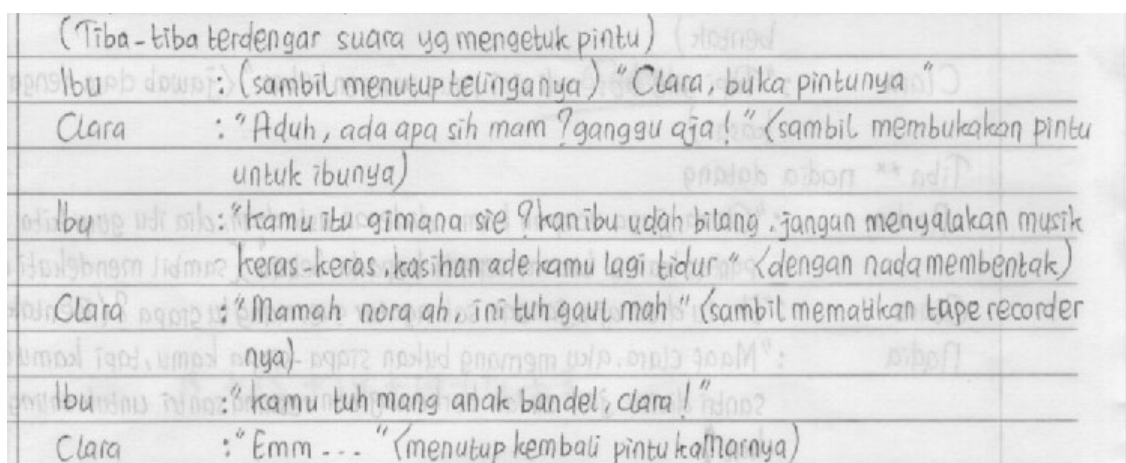 (Tiba-tiba terdengar suara yg mengetuk pintu)
Ibu : (sambil menutup telinganya) "Clara, buka pintunya"
Clara : "Aduh, ada apa sih mam? ganggu aja!" (sambil membukakan pintu
untuk ibunya)
Ibu : "kamu itu gimana sie? kan ibu udah bilang, jangan menyalakan musik
keras-keras, kasihan ade kamu lagi tidur" (dengan nada membentak)
Clara : "Mamah nora ah, ini tuh gaul mah" (sambil mematikan tape recorder
nya)
Ibu : "kamu tuh mang anak bandel, clara!"
Clara : "Emm ...." (menutup kembali pintu kamarnya)